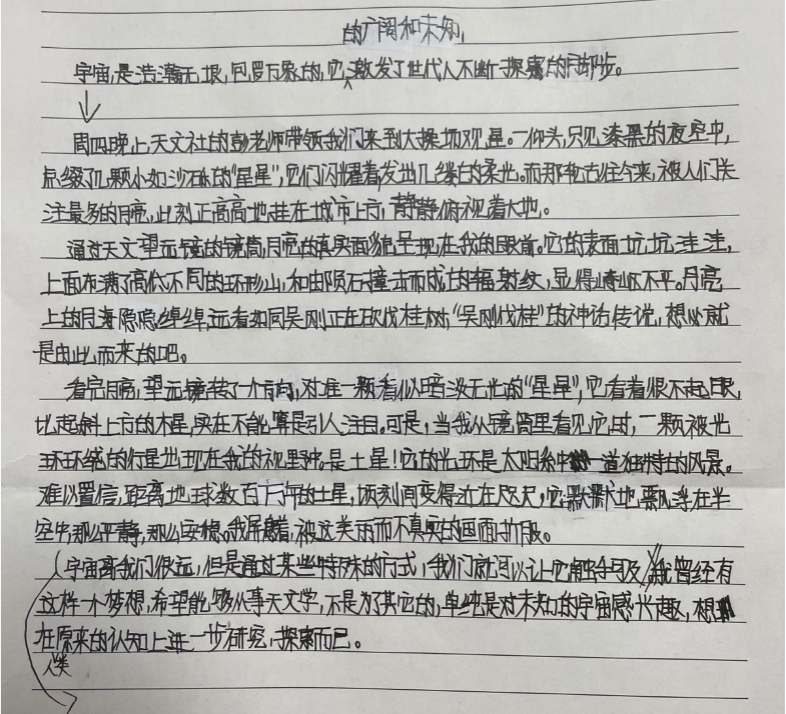 的广阔和未知,
宇宙,是浩瀚无垠,包罗万象的,它激发了世代人不断探索的脚步。
周四晚上,天文社的彭老师带领我们来到大操场观星。一仰头,只见漆黑的夜空中,
点缀了几颗小如沙砾的“星星”,它们闪耀着,发出几缕的柔光。而那轮古往今来,被人们关
注最多的月亮,此刻正高高地挂在城市上方,静静俯视着大地。
通过天文望远镜的镜筒,月亮的真实面貌呈现在我的眼前。它的表面坑坑洼洼,
上面布满了高低不同的环形山,和由陨石撞击而成的辐射纹,显得崎岖不平。月亮
上的月海隐隐绰绰,远看如同吴刚正在砍伐桂树,“吴刚伐桂”的神话传说,想必就
是由此而来的吧。
看完月亮,望远镜转了一个方向,对准一颗看似暗淡无光的“星星”,它看着很不起眼,
比起斜上方的木星,实在不能算是引人注目。可是,当我从镜筒里看见它时,一颗被光
环环绕的行星出现在我的视野中。是土星!它的光环是太阳系中一道独特的风景。
难以置信,距离地球数百万年的土星,顷刻间变得近在咫尺,它默默地飘浮在半
空中,那么平静,那么安稳。我屏息着,被这美丽而不真实的画面折服。
宇宙离我们很远,但是通过某些特殊的方式,我们就可以让它触手可及,我曾经有
这样一个梦想,希望能够从事天文学,不是为了其它的,单纯是对未知的宇宙感兴趣,想
在原来的认知上进一步研究,探索而已。
人类